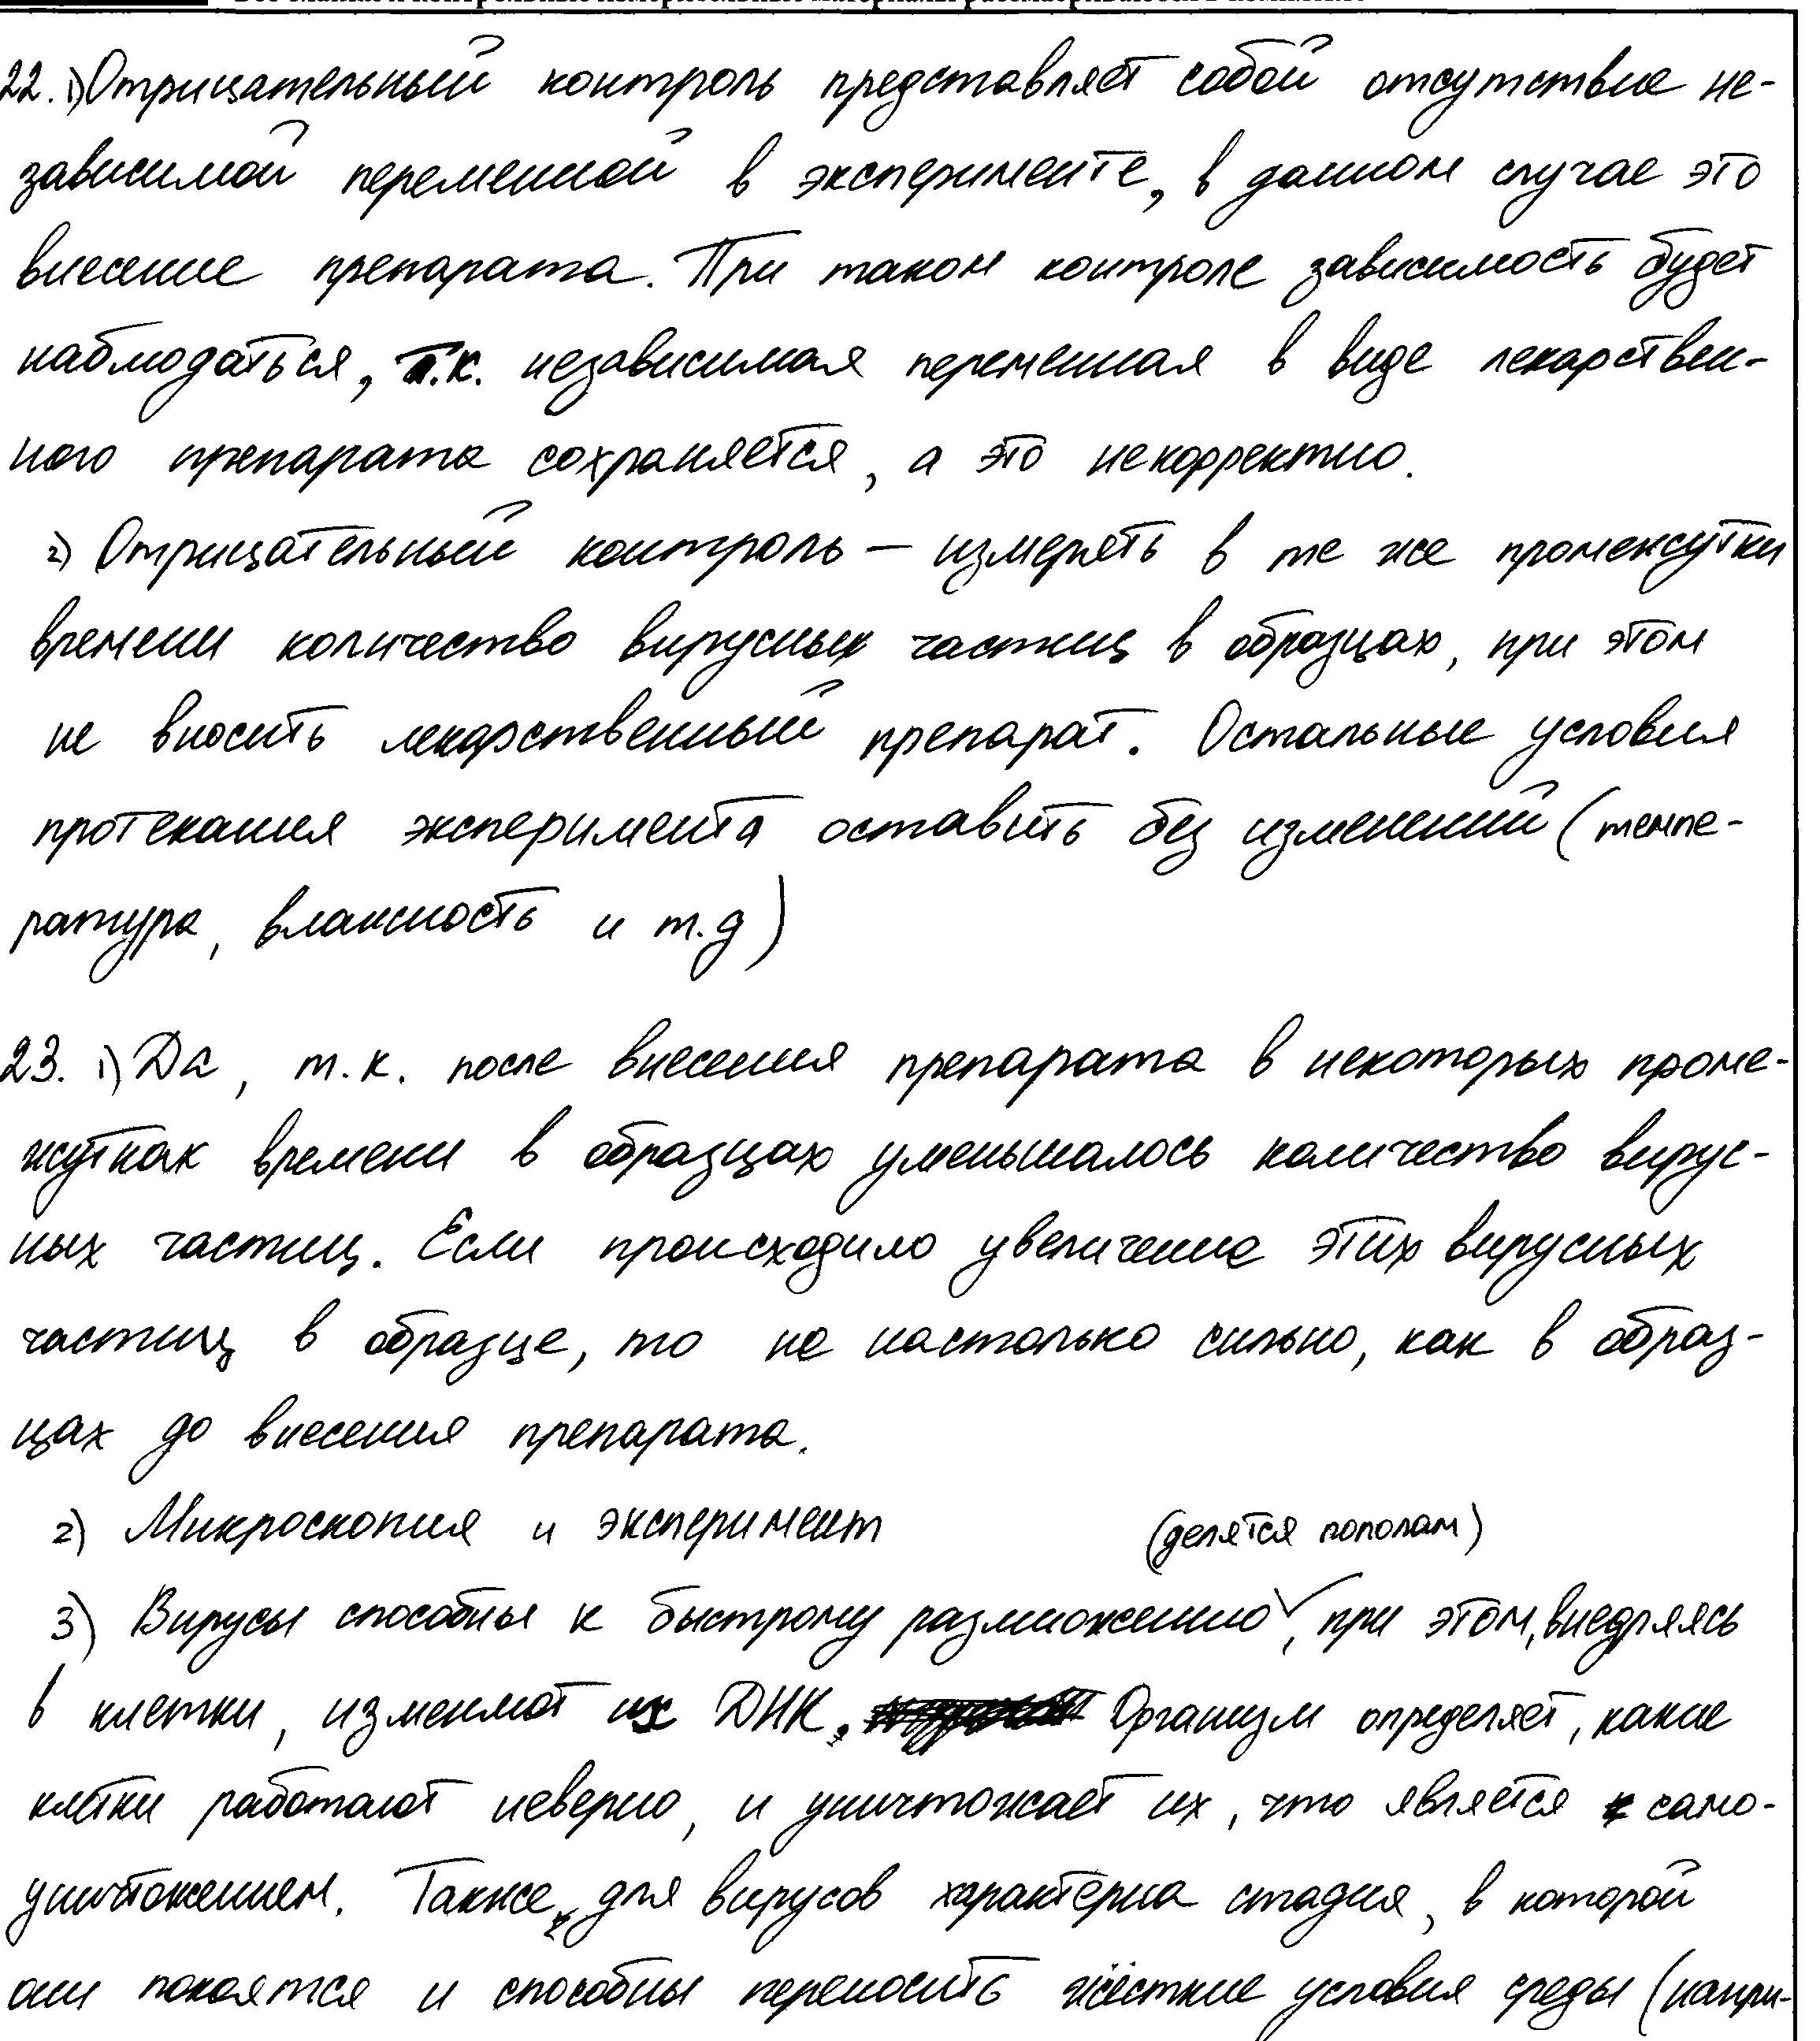 22. 1) Отрицательный контроль представляет собой отсутствие не-
зависимой переменной в эксперименте, в данном случае это
внесение препарата. При таком контроле зависимость будет
наблюдаться, т.к. независимая переменная в виде лекарствен-
ного препарата сохраняется, а это некорректно.
2) Отрицательный контроль — измерять в те же промежутки
времени количество вирусных частиц в образцах, при этом
не вносить лекарственный препарат. Остальные условия
протекания эксперимента оставить без изменений (темпе-
ратура, влажность и т.д)
23. 1) Да, т.к. после внесения препарата в некоторых проме-
жутках времени в образцах уменьшалось количество вирус-
ных частиц. Если происходило увеличение этих вирусных
частиц в образце, то не настолько сильно, как в образ-
цах до внесения препарата.
2) Микроскопия и эксперимент
(делятся пополам)
3) Вирусы способны к быстрому размножению, при этом, внедряясь
в клетки, изменяют их ДНК. Организм определяет, какие
клетки работают неверно, и уничтожает их, что является само-
уничтожением. Также для вирусов характерна стадия, в которой
они покоятся и способны переносить жёсткие условия среды (напри-